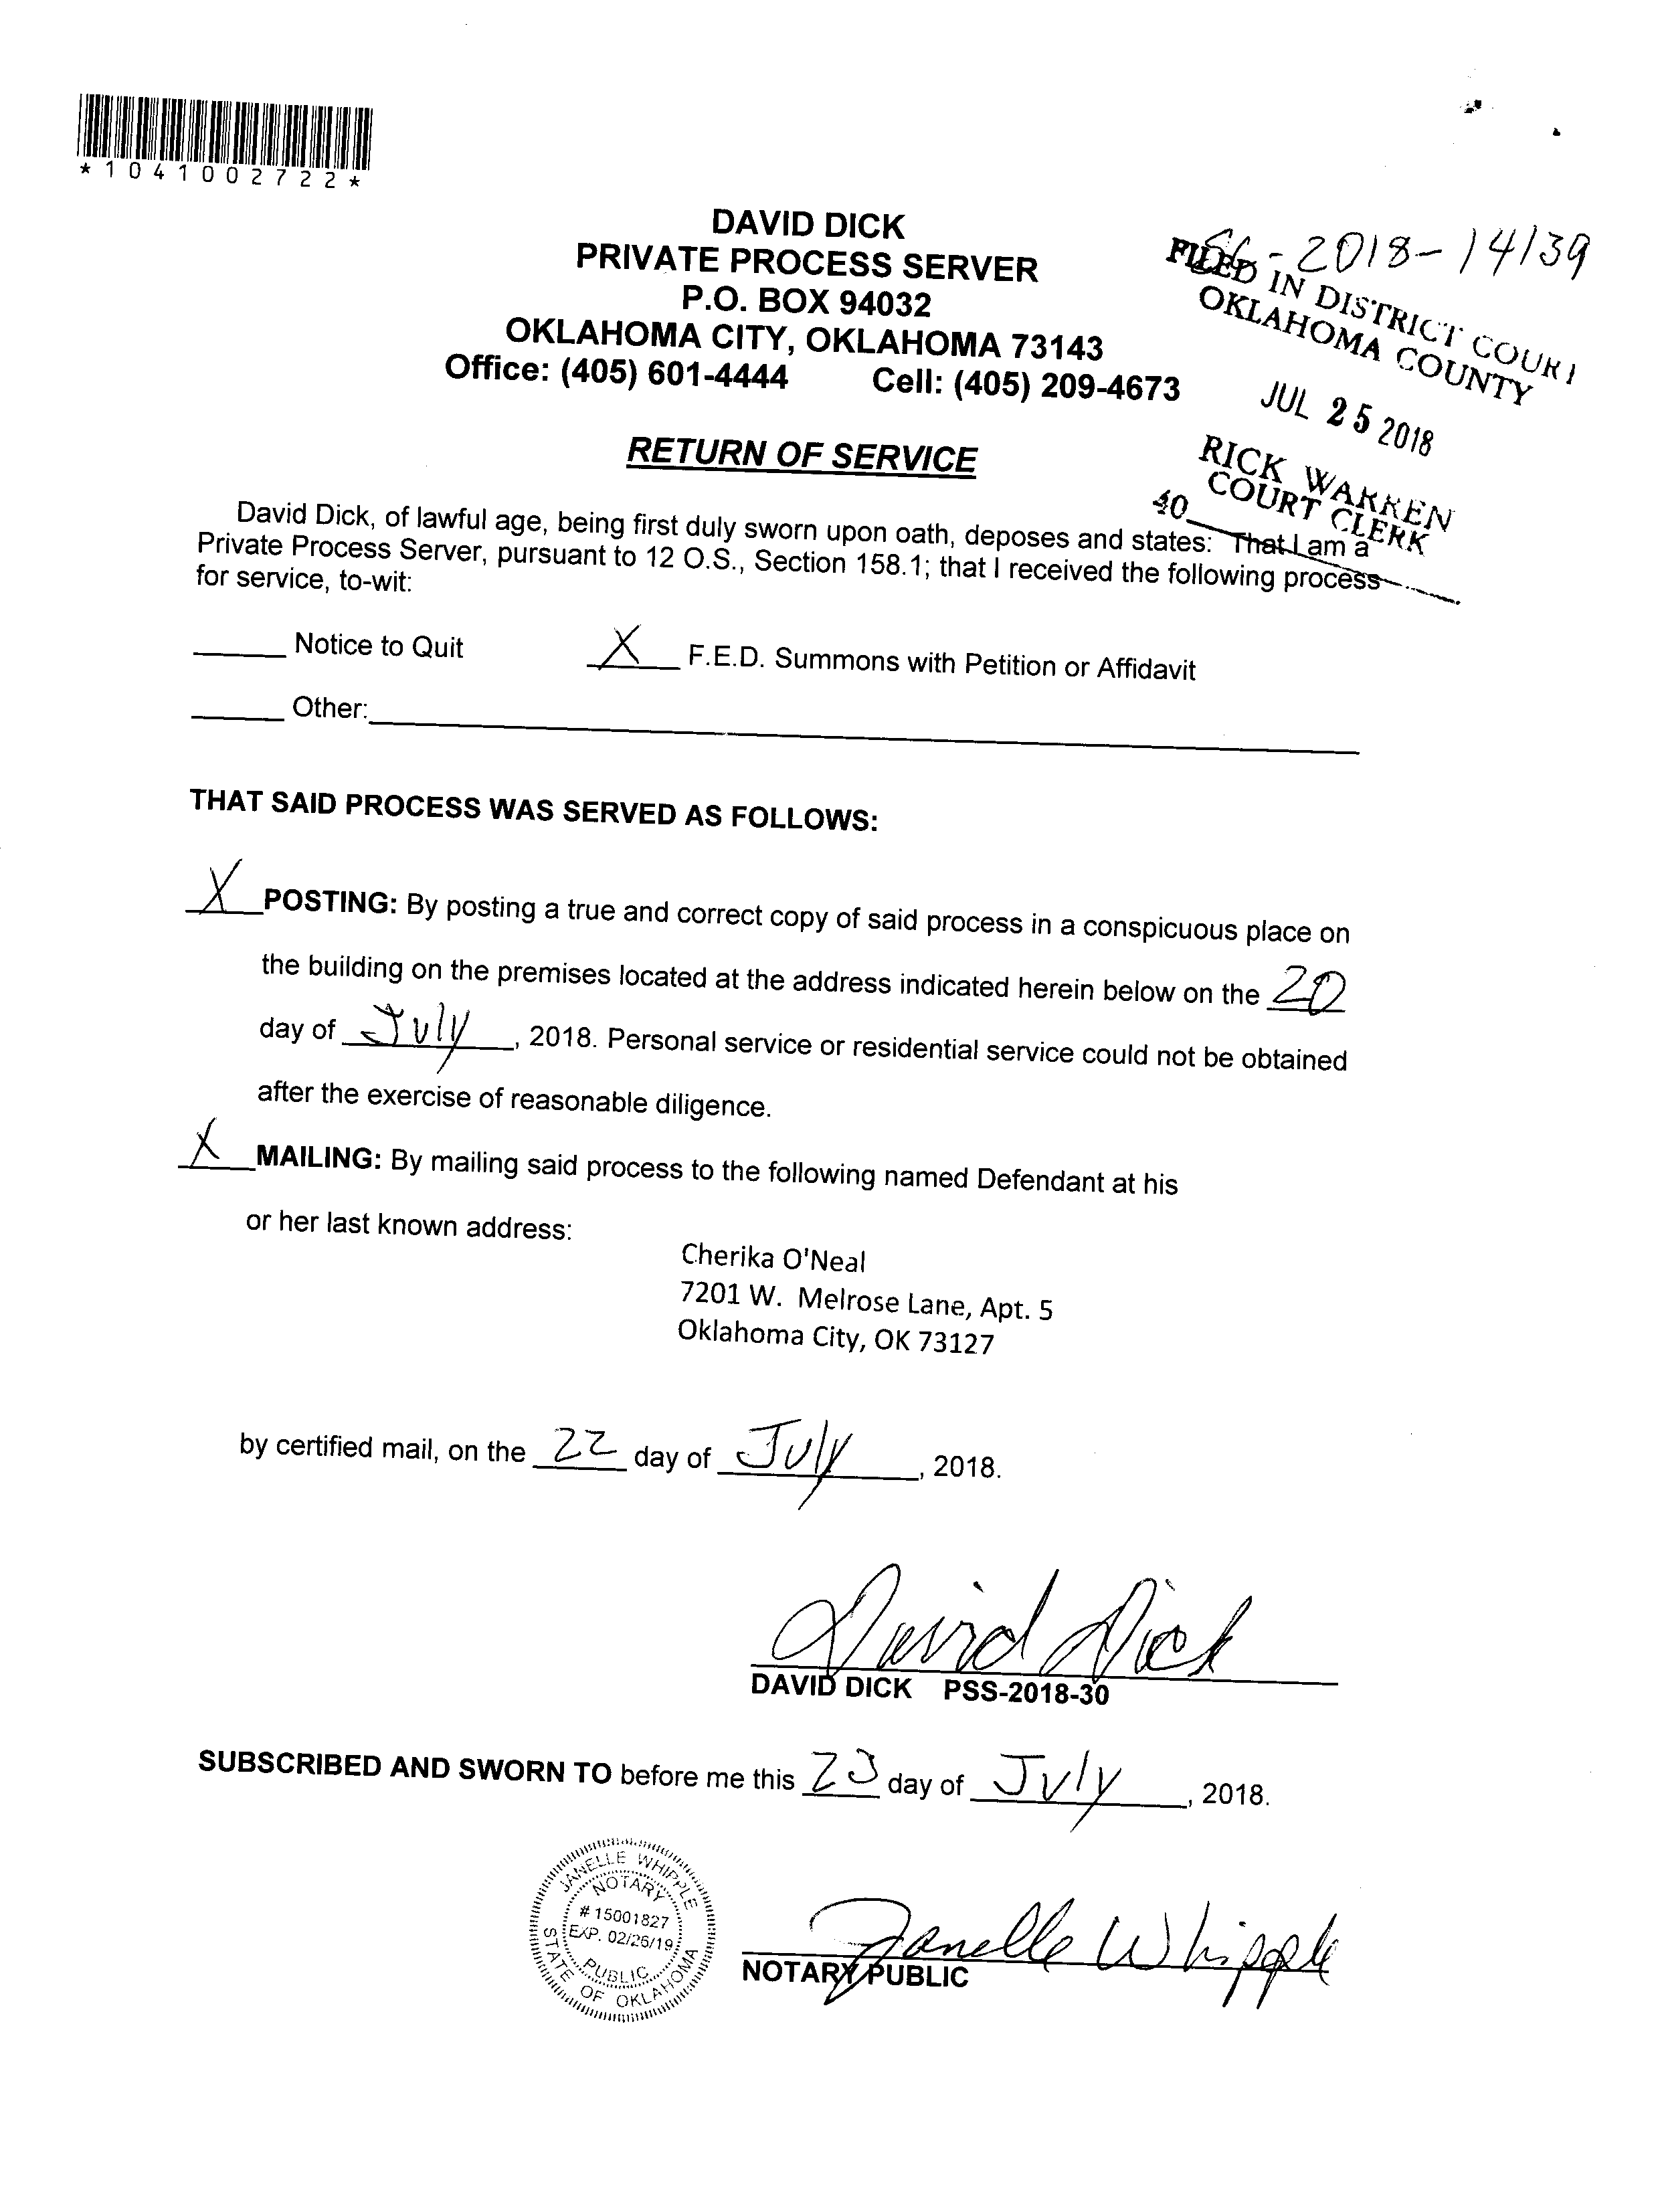 *1041002722*
DAVID DICK
PRIVATE PROCESS SERVER
P.O. BOX 94032
OKLAHOMA CITY, OKLAHOMA 73143
Office: (405) 601-4444 Cell: (405) 209-4673
SC-2018-14139
FILED IN DISTRICT COURT
OKLAHOMA COUNTY
JUL 25 2018
RICK WARREN
COURT CLERK
40
RETURN OF SERVICE
David Dick, of lawful age, being first duly sworn upon oath, deposes and states: That I am a
Private Process Server, pursuant to 12 O.S., Section 158.1; that I received the following process
for service, to-wit:
_____ Notice to Quit X F.E.D. Summons with Petition or Affidavit
_____ Other:_____
THAT SAID PROCESS WAS SERVED AS FOLLOWS:
X POSTING: By posting a true and correct copy of said process in a conspicuous place on
the building on the premises located at the address indicated herein below on the 20
day of July, 2018. Personal service or residential service could not be obtained
after the exercise of reasonable diligence.
X MAILING: By mailing said process to the following named Defendant at his
or her last known address:
Cherika O'Neal
7201 W. Melrose Lane, Apt. 5
Oklahoma City, OK 73127
by certified mail, on the 22 day of July, 2018.
David Dick
DAVID DICK PSS-2018-30
SUBSCRIBED AND SWORN TO before me this 23 day of July, 2018.
JANELLE WHIPPLE
NOTARY
# 15001827
EXP. 02/26/19
PUBLIC
STATE OF OKLAHOMA
Janelle Whipple
NOTARY PUBLIC